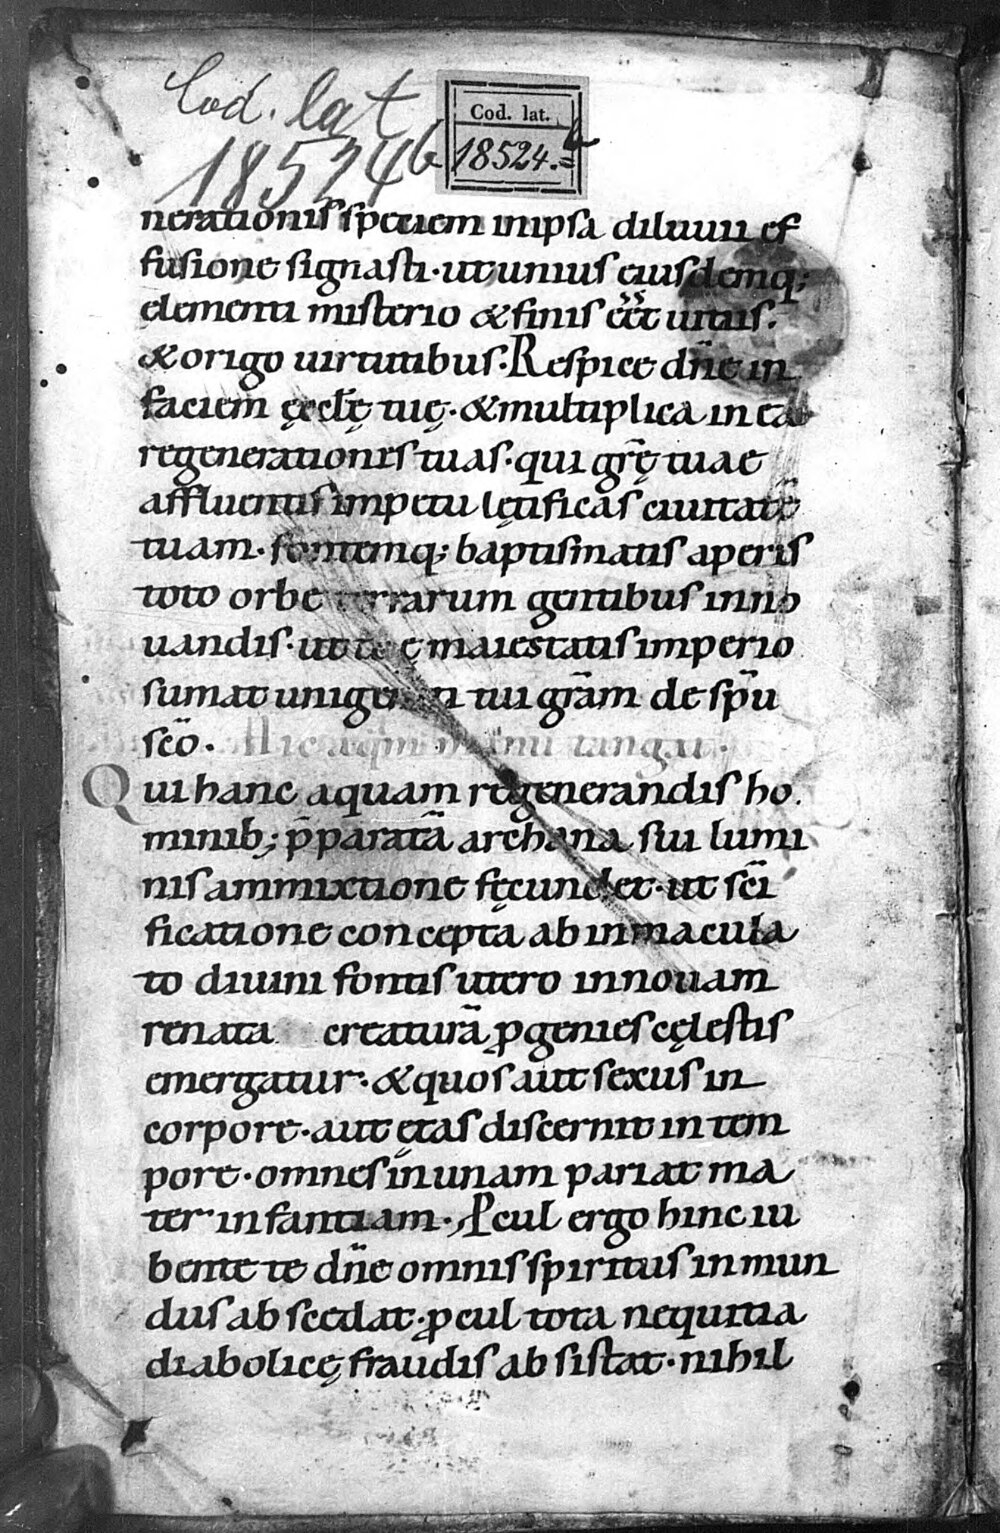 Cod. lat
18524b
Cod. lat.
18524.=b
nerationis speciem in ipsa diluuii ef
fusione signasti· ut unius eiusdemq;
elementi misterio & finis eēt uitiis·
& origo uirtutibus· Respice dn̄e in
faciem ęcclę̄ tuę· & multiplica in ea
regenerationes tuas· qui gr̄ę tuae
affluentis impetu lętificas ciuitatē
tuam· fontemq; baptismatis aperis
toto orbe terrarum gentibus inno
uandis· ut tuę maiestatis imperio
sumat unigeniti tui gr̄am de sp̄u
sc̄o· Hic aqua manu tangat·
Qui hanc aquam regenerandis ho
minib; p̄paratā archana sui lumi
nis ammixtione fęcundet· ut sc̄i
ficatione concepta ab inmacula
to diuini fontis utero in nouam
renata creaturā ꝓgenies cęlestis
emergatur· & quos aut sexus in
corpore· aut ętas discernit in tem
pore· omnes in unam pariat ma
ter infantiam· Ꝓcul ergo hinc iu
bente te dn̄e omnis spiritus inmun
dus abscedat· ꝓcul tota nequitia
diabolicę fraudis absistat· nihil